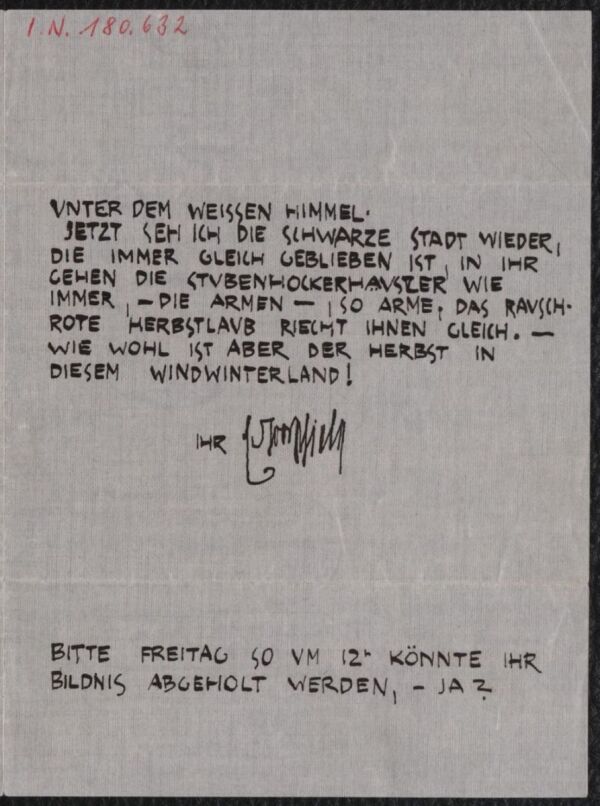 I.N. 180.632
UNTER DEM WEISSEN HIMMEL.
JETZT SEH ICH DIE SCHWARZE STADT WIEDER,
DIE IMMER GLEICH GEBLIEBEN IST, IN IHR
GEHEN DIE STUBENHOCKERHAUSLER WIE
IMMER, – DIE ARMEN – , SO ARME, DAS RAUSCH-
ROTE HERBSTLAUB RIECHT IHNEN GLEICH. –
WIE WOHL IST ABER DER HERBST IN
DIESEM WINDWINTERLAND!
IHR
BITTE FREITAG SO UM 12h KÖNNTE IHR
BILDNIS ABGEHOLT WERDEN, – JA?